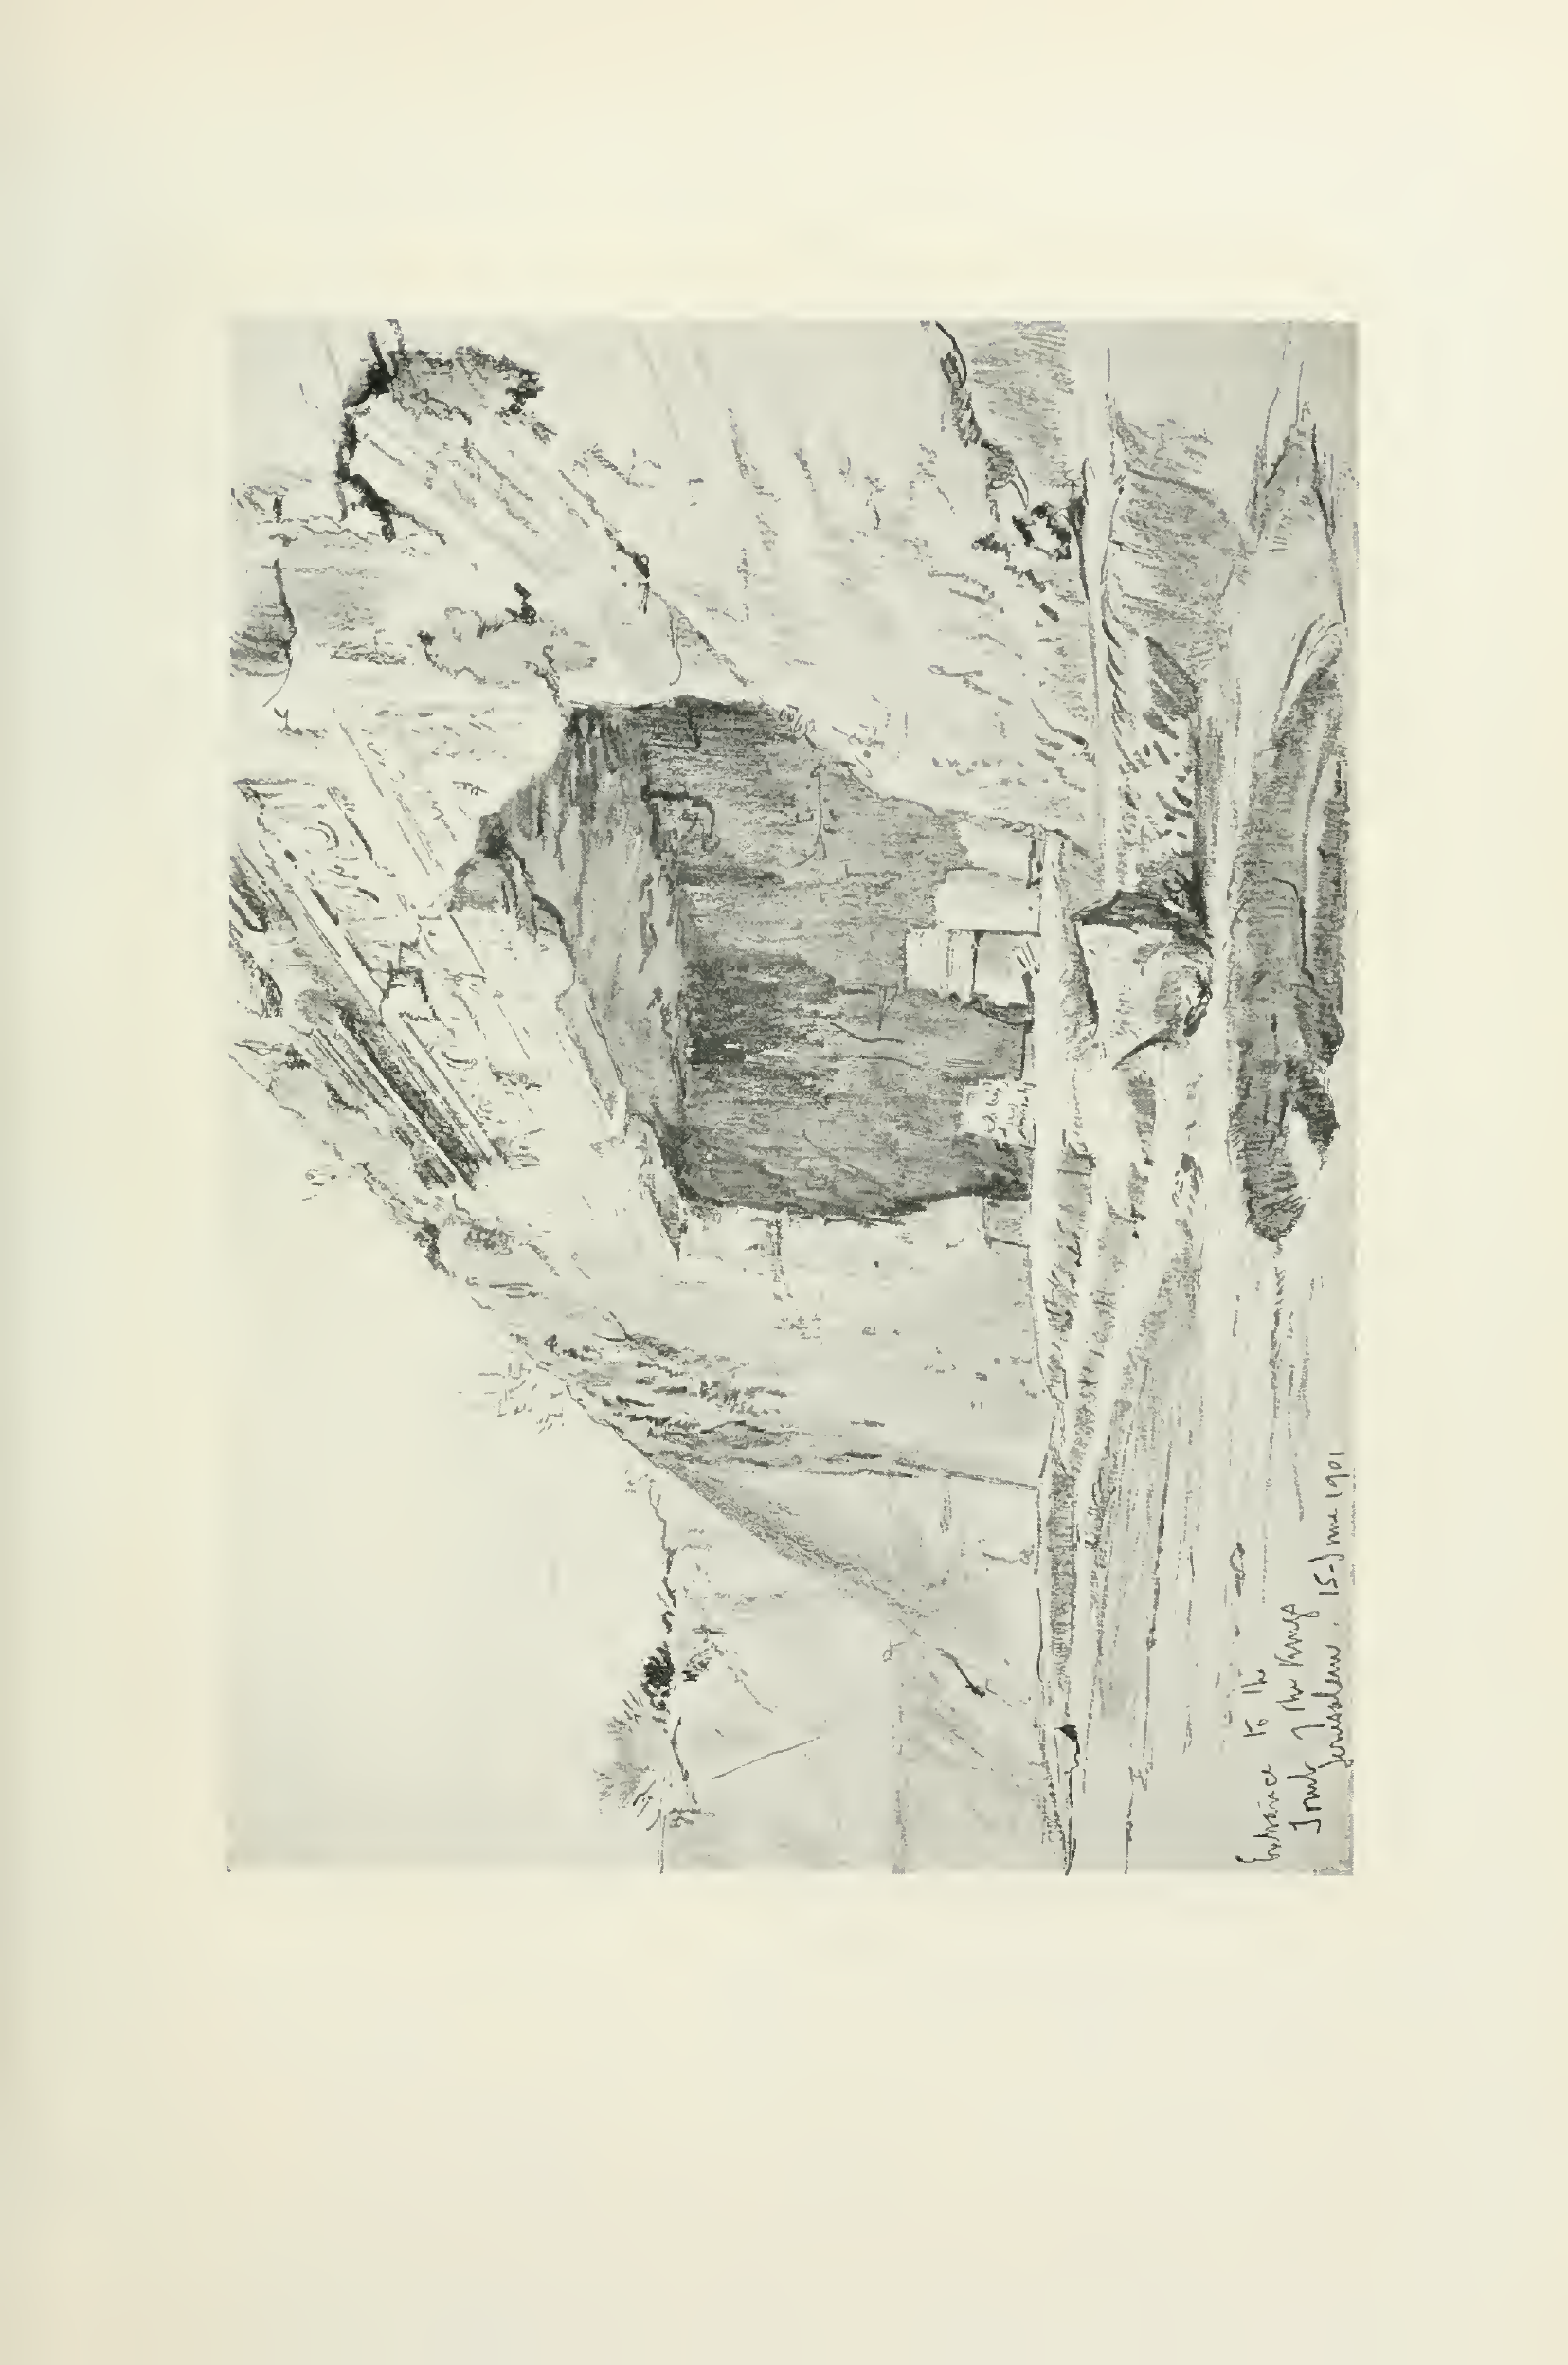 Entrance to the
Tomb of the Kings
Jerusalem. 15 June 1901